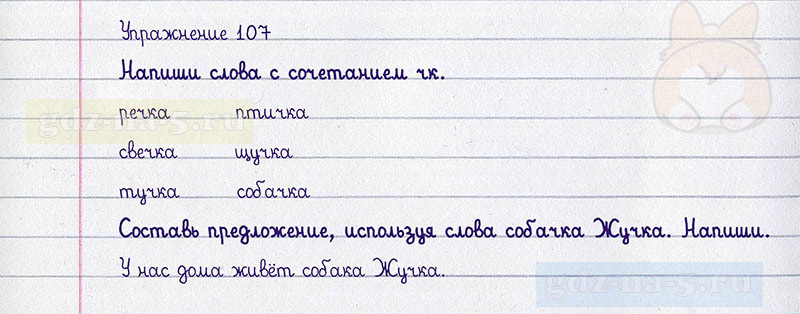 Упражнение 107
Напиши слова с сочетанием чк.
речка птичка
свечка щучка
тучка собачка
Составь предложение, используя слова собачка Жучка. Напиши.
У нас дома живёт собака Жучка.
gdz-na-5.ru
gdz-na-5.ru